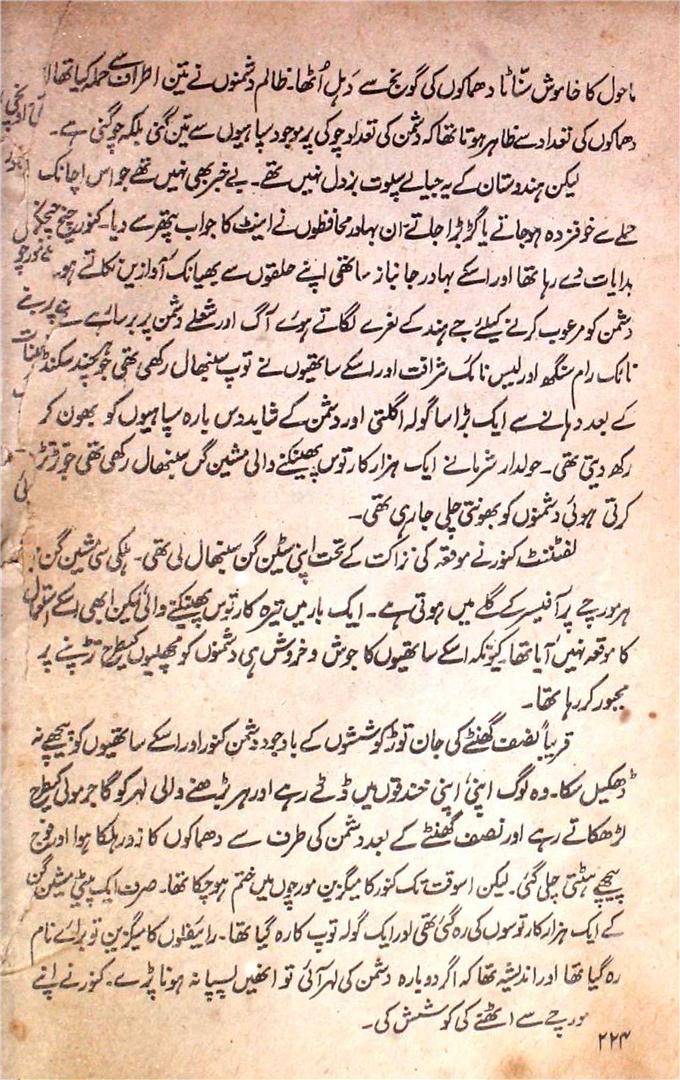 ماحول کا خاموش سنّاٹا دھماکوں کی گونج سے دَہل اُٹھا۔ ظالم دشمنوں نے تین اطراف سے حملہ کیا تھا
دھماکوں کی تعداد سے ظاہر ہوتا تھا کہ دشمن کی تعداد چوکی پر موجود سپاہیوں سے تین گنی بلکہ چوگنی ہے۔
لیکن ہندوستان کے یہ جیالے سپوت بزدل نہیں تھے۔ بے خبر بھی نہیں تھے جو اس اچانک
حملے سے خوفزدہ ہو جاتے یا گڑبڑا جاتے ان بہادر محافظوں نے اینٹ کا جواب پتھر سے دیا۔ کنور چیخ چیخکر
ہدایات دے رہا تھا اور اسکے بہادر جانباز ساتھی اپنے حلقوں سے بھیانک آوازیں نکالتے ہوئے
دشمن کو مرعوب کرنے کیلئے جے ہند کے نعرے لگاتے ہوئے آگ اور شعلے دشمن پر برسا رہے تھے
نائک رام سنگھ اور لیس نائک شرافت اور اسکے ساتھیوں نے توپ سنبھال رکھی تھی جو چند سکنڈ
کے بعد دہانے سے ایک بڑا سا گولہ اگلتی اور دشمن کے شاید دس بارہ سپاہیوں کو بھون کر
رکھ دیتی تھی۔ حولدار شرما نے ایک ہزار کارتوس پھینکنے والی مشین گن سنبھال رکھی تھی جو تڑتڑ
کرتی ہوئی دشمنوں کو بھونتی چلی جا رہی تھی۔
لفٹننٹ کنور نے موقعہ کی نزاکت کے تحت اپنی سٹین گن سنبھال لی تھی۔ ہلکی سی مشین گن
ہر مورچے پر آفیسر کے گلے میں ہوتی ہے۔ ایک بار میں تیرہ کارتوس پھینکنے والی لیکن ابھی اسکے استعمال
کا موقعہ نہیں آیا تھا کیونکہ اسکے ساتھیوں کا جوش و خروش ہی دشمنوں کو مچھلیوں کیطرح تڑپنے پر
مجبور کر رہا تھا۔
قریباً نصف گھنٹے کی جان توڑ کوششوں کے باوجود دشمن کنور اور اسکے ساتھیوں کو پیچھے نہ
ڈھکیل سکا۔ وہ لوگ اپنی اپنی خندقوں میں ڈٹے رہے اور ہر بڑھنے والی لہر کو گاجر مولی کیطرح
لڑھکاتے رہے اور نصف گھنٹے کے بعد دشمن کی طرف سے دھماکوں کا زور ہلکا ہوا اور فوج
پیچھے ہٹتی چلی گئی۔ لیکن اسوقت تک کنور کا میگزین مورچوں میں ختم ہو چکا تھا۔ صرف ایک پیٹی مشین گن
کے ایک ہزار کارتوسوں کی رہ گئی تھی اور ایک گولہ توپ کا رہ گیا تھا۔ رائیفلوں کا میگزین تو برائے نام
رہ گیا تھا اور اندیشہ تھا کہ اگر دوبارہ دشمن کی لہر آئی تو انھیں پسپا نہ ہونا پڑے۔ کنور نے اپنے
مورچے سے اٹھنے کی کوشش کی۔
۲۲۴